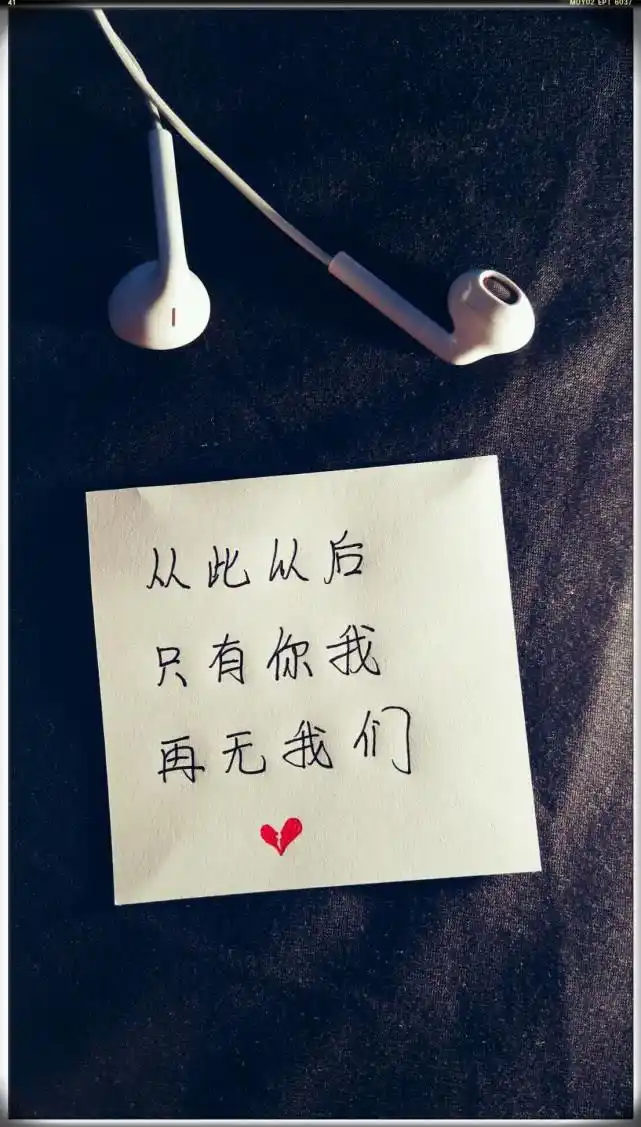 41
MUY02 EPT 6037
从此从后
只有你我
再无我们